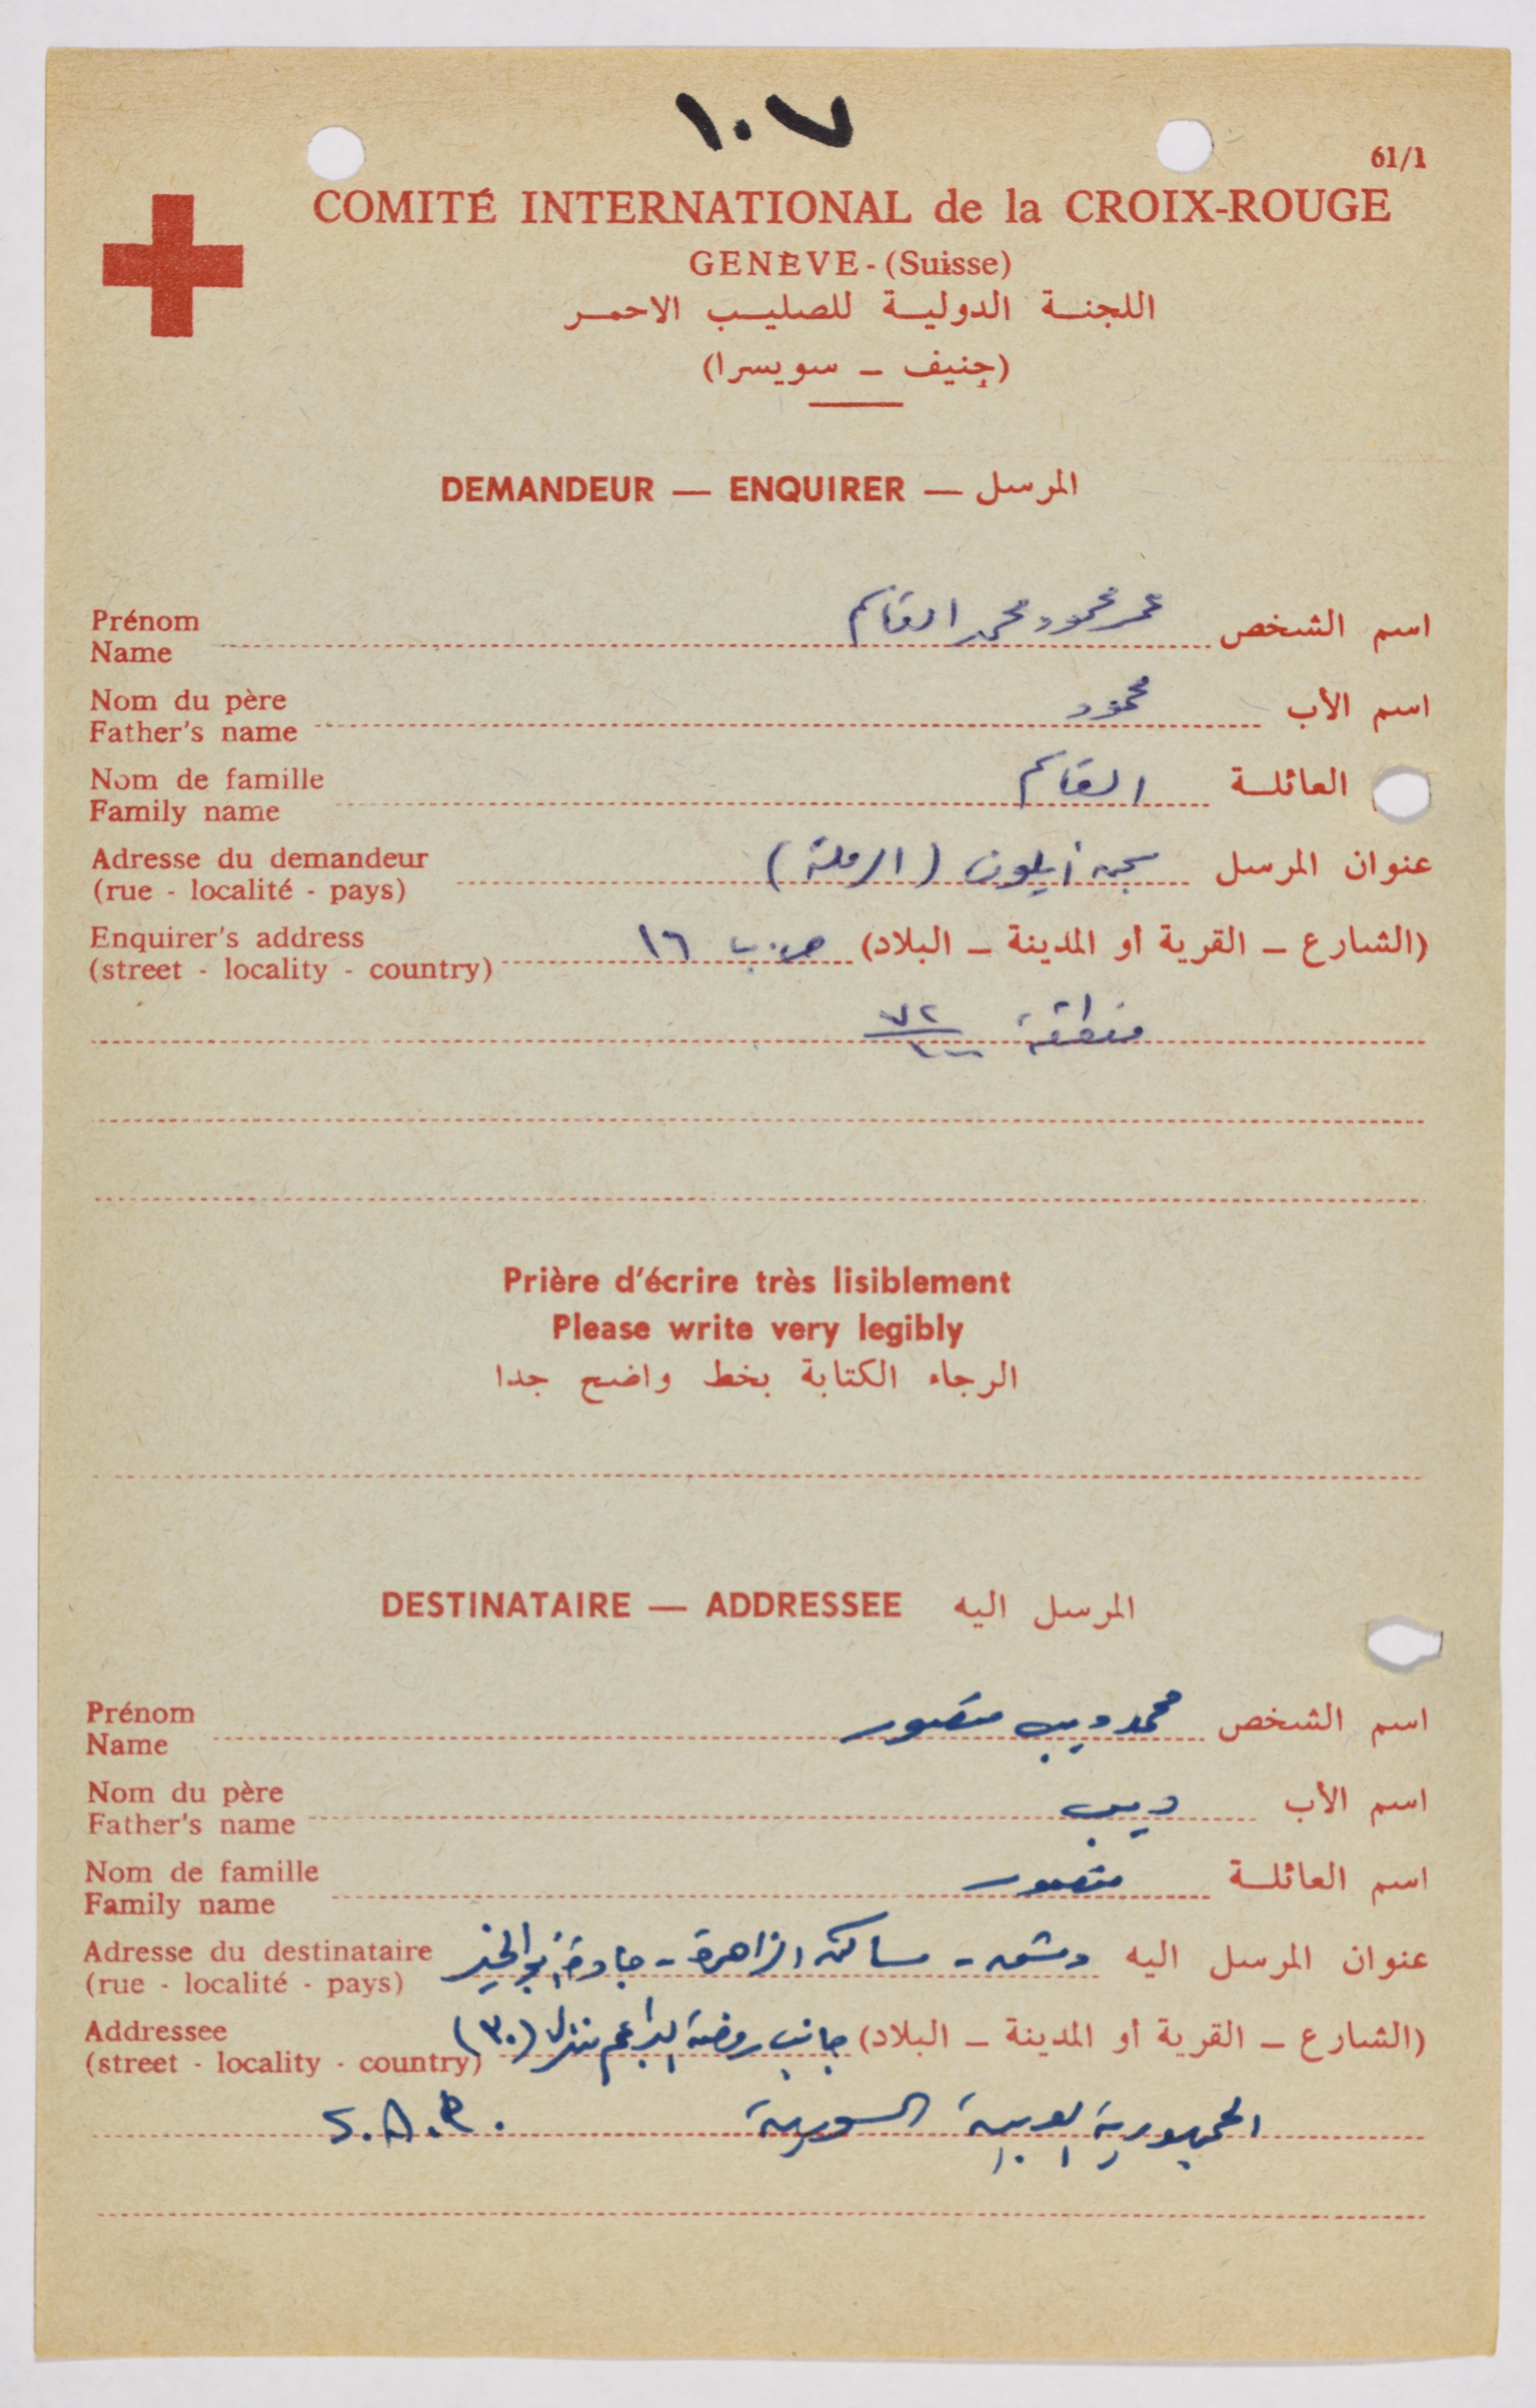 ١٠٧
61/1
COMITÉ INTERNATIONAL de la CROIX-ROUGE
GENÈVE - (Suisse)
اللجنة الدولية للصليب الاحمر
(جنيف – سويسرا)
DEMANDEUR — ENQUIRER — المرسل
Prénom
Name
اسم الشخص عمر محمود محمد القاسم
Nom du père
Father's name
اسم الأب محمود
Nom de famille
Family name
العائلة القاسم
Adresse du demandeur
(rue - localité - pays)
عنوان المرسل سجن أيلون (الرملة)
Enquirer's address
(street - locality - country)
(الشارع – القرية أو المدينة – البلاد) ص.ب ١٦
منطقة ٧٢/١٠٠
Prière d'écrire très lisiblement
Please write very legibly
الرجاء الكتابة بخط واضح جدا
DESTINATAIRE — ADDRESSEE المرسل اليه
Prénom
Name
اسم الشخص محمد ديب منصور
Nom du père
Father's name
اسم الأب ديب
Nom de famille
Family name
اسم العائلة منصور
Adresse du destinataire
(rue - localité - pays)
عنوان المرسل اليه دمشق - مساكن الزاهرة - جادة أبو الخير
Addressee
(street - locality - country)
(الشارع – القرية أو المدينة – البلاد) جانب روضة البراعم منزل (٣٠)
الجمهورية العربية السورية S.A.R.